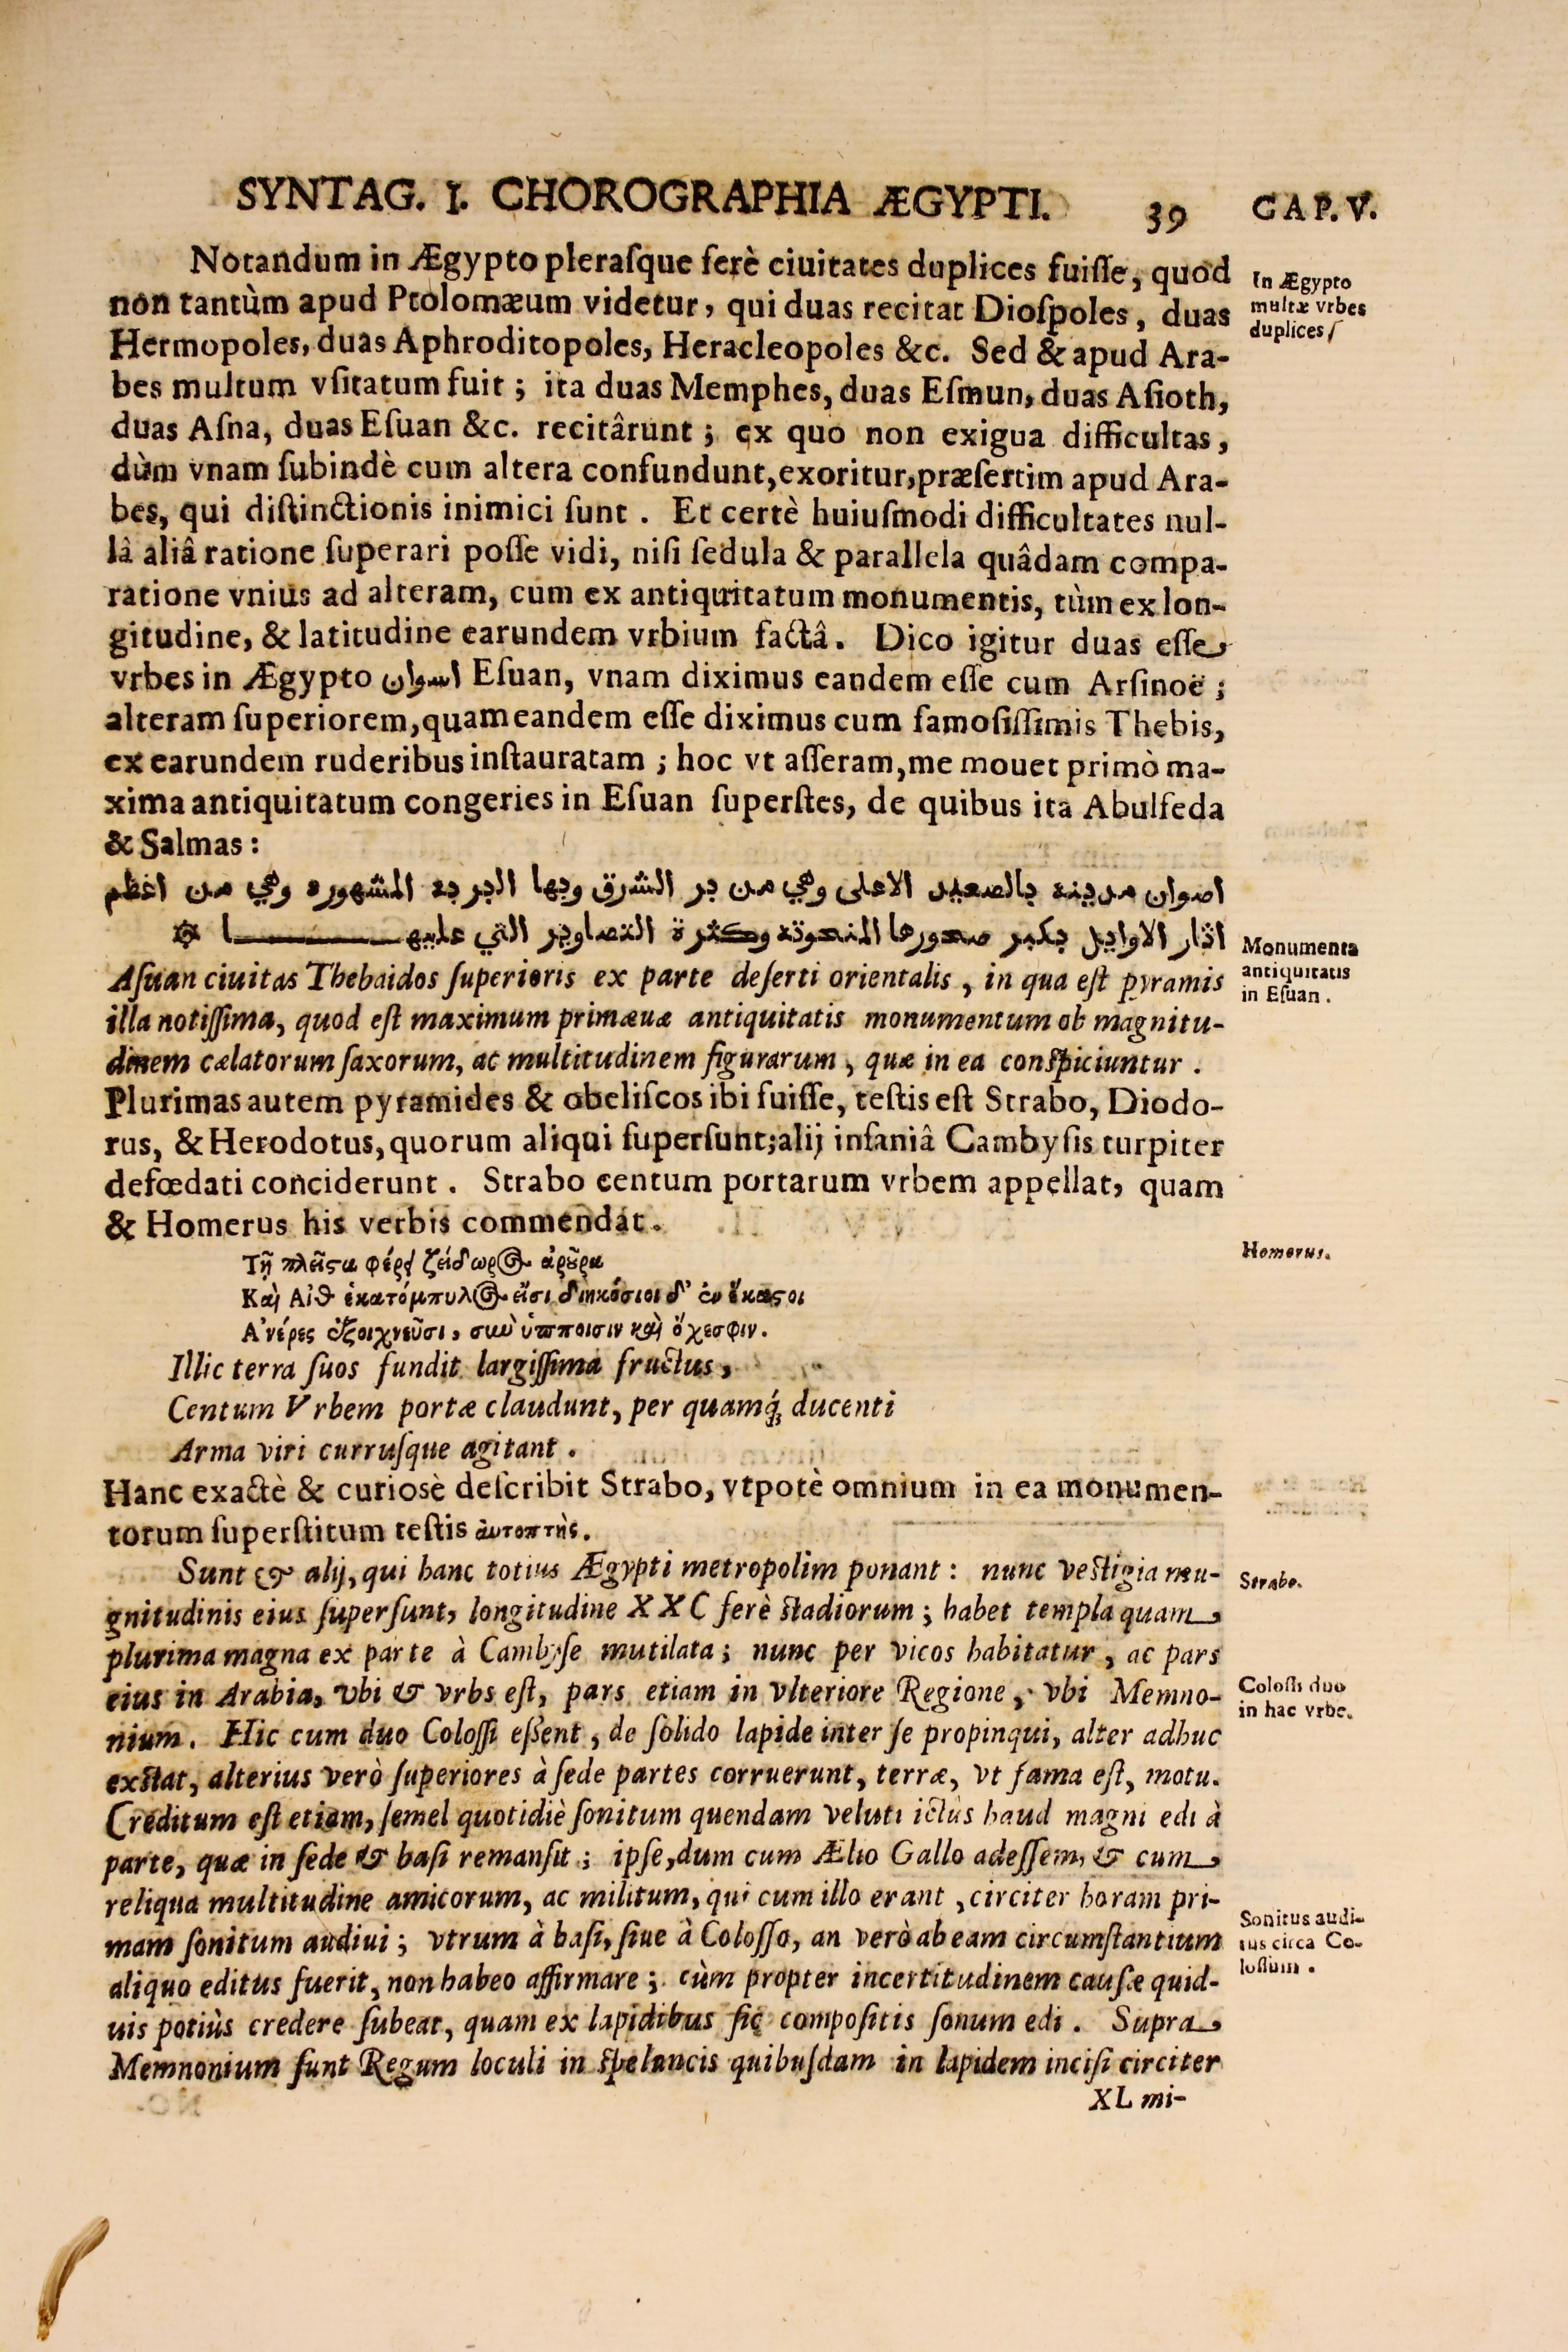 SYNTAG. I. CHOROGRAPHIA ÆGYPTI. 39 CAP. V.
Notandum in Ægypto pleraſque ferè ciuitates duplices fuiſſe, quod
non tantùm apud Ptolomæum videtur, qui duas recitat Dioſpoles, duas
Hermopoles, duas Aphroditopoles, Heracleopoles &c. Sed & apud Ara-
bes multum vſitatum fuit; ita duas Memphes, duas Eſmun, duas Aſioth,
duas Aſna, duas Eſuan &c. recitârunt; ex quo non exigua difficultas,
dùm vnam ſubindè cum altera confundunt, exoritur, præſertim apud Ara-
bes, qui diſtinctionis inimici ſunt. Et certè huiuſmodi difficultates nul-
lâ aliâ ratione ſuperari poſſe vidi, niſi ſedula & parallela quâdam compa-
ratione vnius ad alteram, cum ex antiquitatum monumentis, tùm ex lon-
gitudine, & latitudine earundem vrbium factâ. Dico igitur duas eſſe
vrbes in Ægypto اسوان Eſuan, vnam diximus eandem eſſe cum Arſinoë;
alteram ſuperiorem, quam eandem eſſe diximus cum famoſiſſimis Thebis,
ex earundem ruderibus inſtauratam; hoc vt aſſeram, me mouet primò ma-
xima antiquitatum congeries in Eſuan ſuperſtes, de quibus ita Abulfeda
& Salmas:
اصوان مدينة بالصعيد الاعلى وهي من بر الشرق وبها البربه المشهوره وهي من اغظم
اثار الاوايل بكبر صحورها المنحوتة وكثرة التصاوير التي عليهـــا ✡
Aſuan ciuitas Thebaidos ſuperioris ex parte deſerti orientalis, in qua eſt pyramis
illa notiſſima, quod eſt maximum primæuæ antiquitatis monumentum ob magnitu-
dinem cælatorum ſaxorum, ac multitudinem figurarum, quæ in ea conſpiciuntur.
Plurimas autem pyramides & obeliſcos ibi fuiſſe, teſtis eſt Strabo, Diodo-
rus, & Herodotus, quorum aliqui ſuperſunt; alij inſaniâ Cambyſis turpiter
defœdati conciderunt. Strabo centum portarum vrbem appellat, quam
& Homerus his verbis commendat.
Τῇ πλεῖςα φέρει ζείδωρος ἀρȣρα
Καὶ Αἰθ ἑκατόμπυλος εἴσι διηκόσιοι δ' ἐν ἕκαςοι
Α'νέρες ἐξοιχνεῦσι, σιὼ ὑπποισιν καὶ ὄχεσφιν.
Illic terra ſuos fundit largiſſima fructus,
Centum Vrbem portæ claudunt, per quamq́; ducenti
Arma viri curruſque agitant.
Hanc exactè & curiosè deſcribit Strabo, vtpotè omnium in ea monumen-
torum ſuperſtitum teſtis ἀυτοπτὴς.
Sunt & alij, qui hanc totius Ægypti metropolim ponant: nunc veſtigia mu-
gnitudinis eius ſuperſunt, longitudine XXC ferè ſtadiorum; habet templa quam
plurima magna ex parte à Cambyſe mutilata; nunc per vicos habitatur, ac pars
eius in Arabia, vbi & vrbs eſt, pars etiam in vlteriore Regione, vbi Memno-
nium. Hic cum duo Coloſſi eſſent, de ſolido lapide inter ſe propinqui, alter adhuc
exſtat, alterius verò ſuperiores à ſede partes corruerunt, terræ, vt fama eſt, motu.
Creditum eſt etiam, ſemel quotidiè ſonitum quendam veluti ictùs haud magni edi à
parte, quæ in ſede & baſi remanſit; ipſe, dum cum Ælio Gallo adeſſem, & cum
reliqua multitudine amicorum, ac militum, qui cum illo erant, circiter horam pri-
mam ſonitum audiui; vtrum à baſi, ſiue à Coloſſo, an verò ab eam circumſtantium
aliquo editus fuerit, non habeo affirmare; cùm propter incertitudinem cauſæ quid-
uis potiùs credere ſubeat, quam ex lapidibus ſic compoſitis ſonum edi. Supra
Memnonium ſunt Regum loculi in ſpeluncis quibuſdam in lapidem inciſi circiter
XL mi-
In Ægypto
multæ vrbes
duplices
Monumenta
antiquitatis
in Eſuan.
Homerus.
Strabo.
Coloſſi duo
in hac vrbe.
Sonitus audi-
tus circa Co-
loſſum.